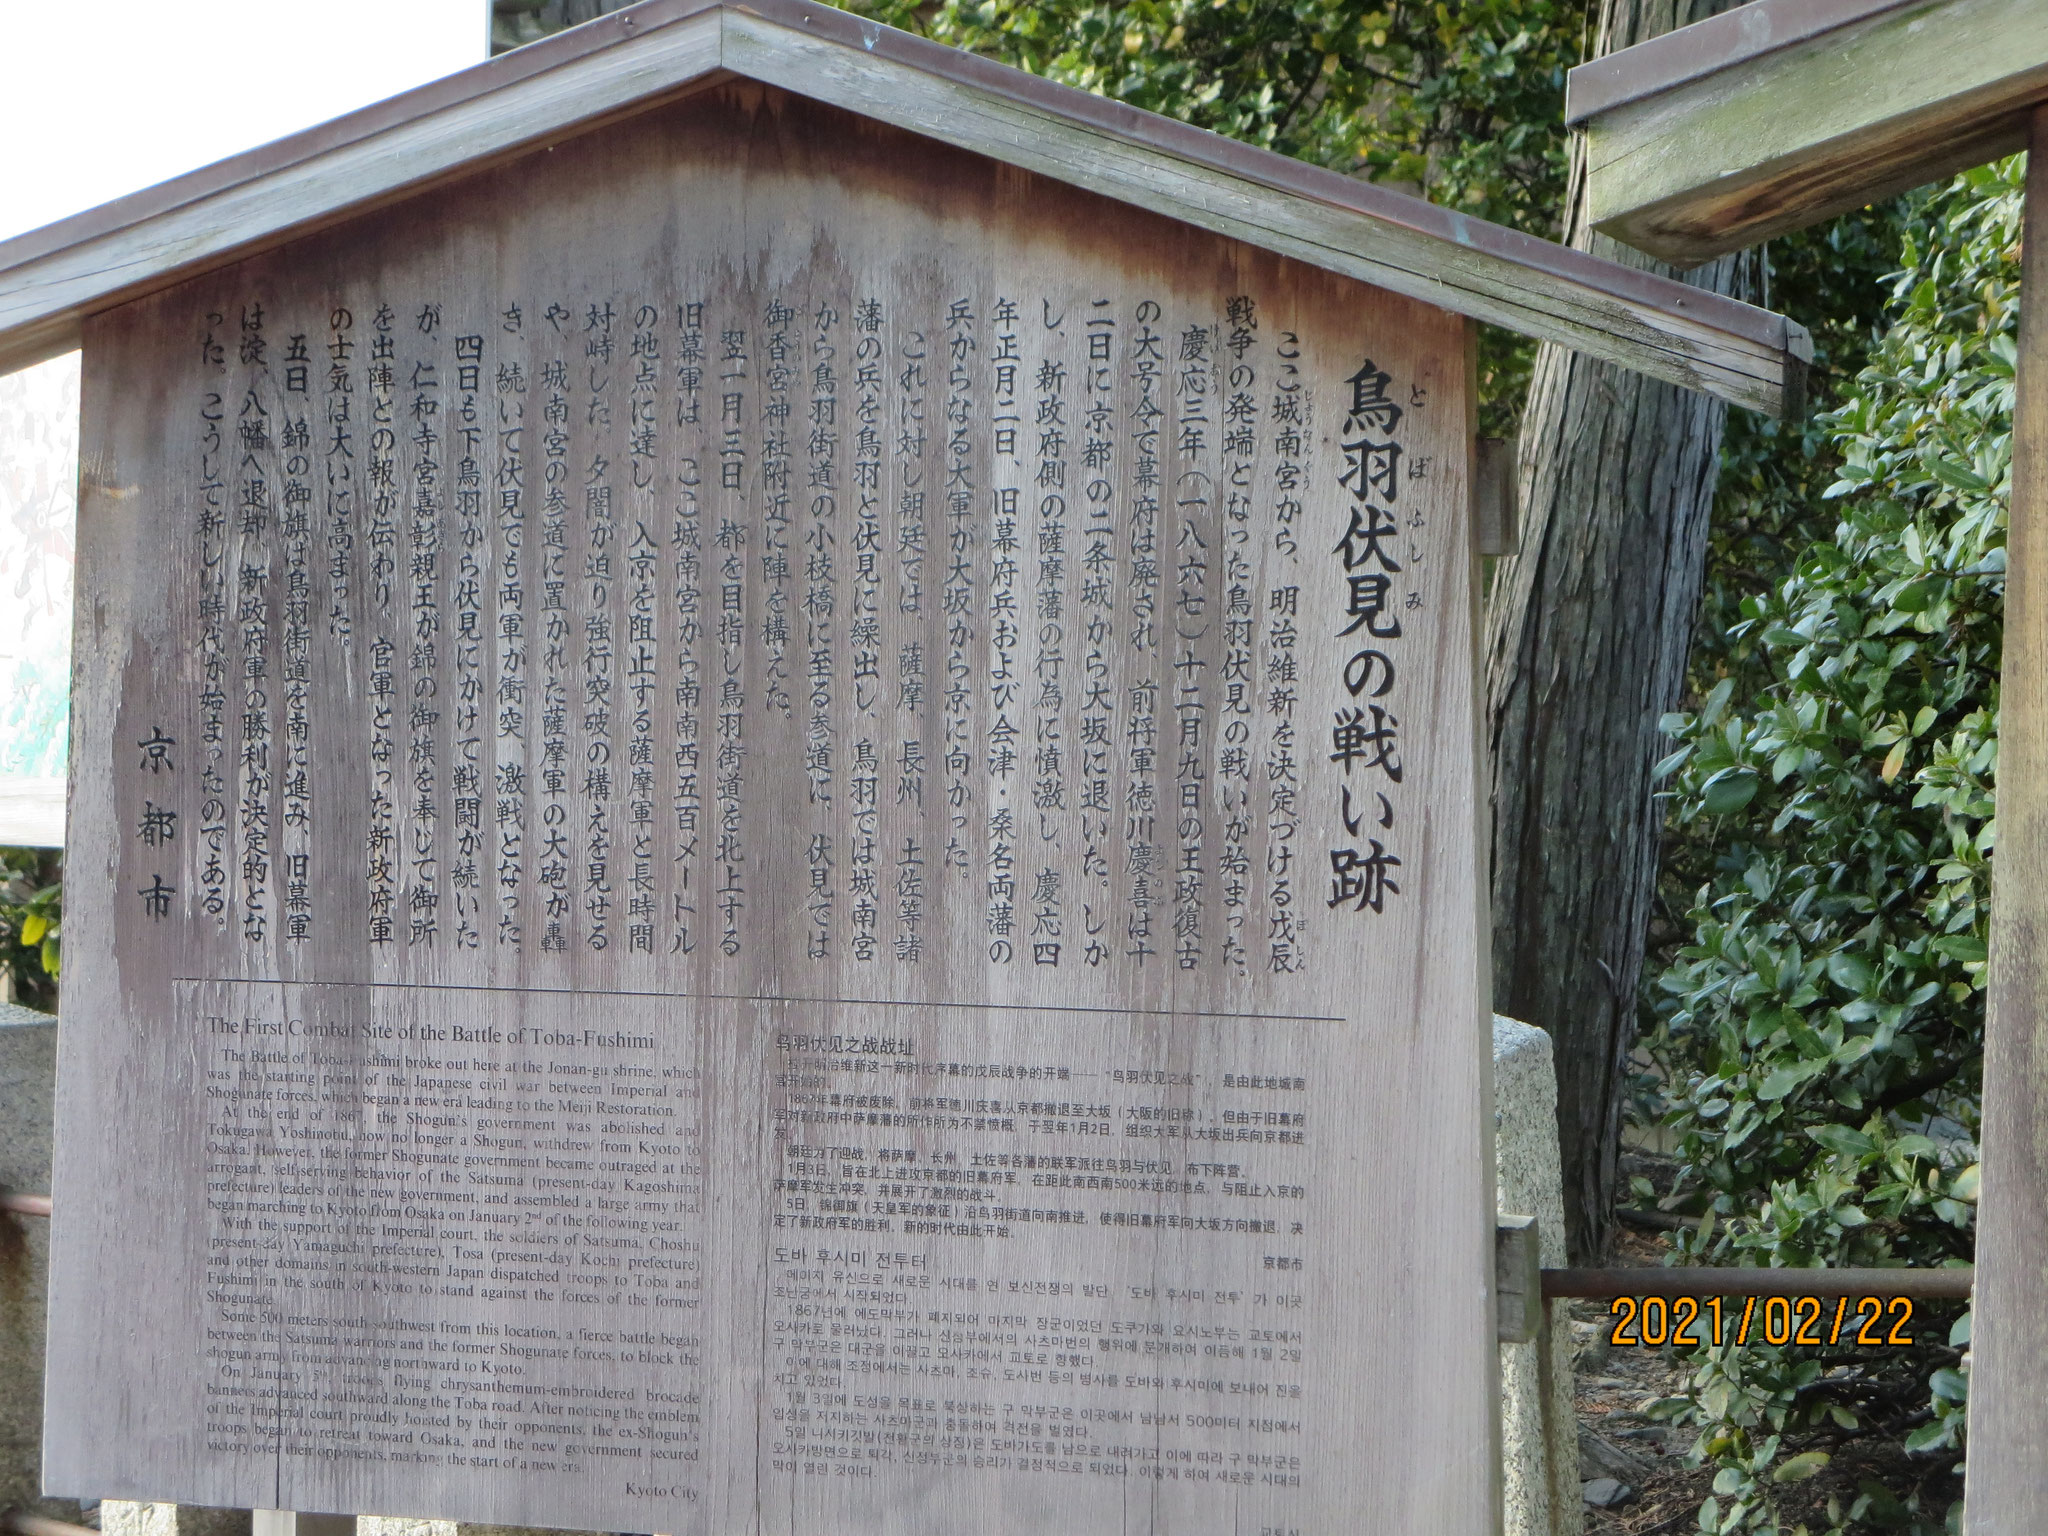 鳥羽伏見の戦い跡
とばふしみ
ここ城南宮から、明治維新を決定づける戊辰
じょうなんぐう
ぼしん
戦争の発端となった鳥羽伏見の戦いが始まった。
慶応三年(一八六七)十二月九日の王政復古
けいおう
の大号令で幕府は廃され、前将軍徳川慶喜は十
よしのぶ
二日に京都の二条城から大坂に退いた。しか
し、新政府側の薩摩藩の行為に憤激し、慶応四
年正月二日、旧幕府兵および会津・桑名両藩の
兵からなる大軍が大坂から京に向かった。
これに対し朝廷では、薩摩、長州、土佐等諸
藩の兵を鳥羽と伏見に繰出し、鳥羽では城南宮
から鳥羽街道の小枝橋に至る参道に、伏見では
御香宮神社附近に陣を構えた。
翌一月三日、都を目指し鳥羽街道を北上する
旧幕軍は、ここ城南宮から南南西五百メートル
の地点に達し、入京を阻止する薩摩軍と長時間
対峙した。夕闇が迫り強行突破の構えを見せる
や、城南宮の参道に置かれた薩摩軍の大砲が轟
き、続いて伏見でも両軍が衝突、激戦となった。
四日も下鳥羽から伏見にかけて戦闘が続いた
が、仁和寺宮嘉彰親王が錦の御旗を奉じて御所
を出陣との報が伝わり、官軍となった新政府軍
の士気は大いに高まった。
五日、錦の御旗は鳥羽街道を南に進み、旧幕軍
は淀、八幡へ退却、新政府軍の勝利が決定的とな
った。こうして新しい時代が始まったのである。
京都市
The First Combat Site of the Battle of Toba-Fushimi
The Battle of Toba-Fushimi broke out here at the Jonan-gu shrine, which
was the starting point of the Japanese civil war between Imperial and
Shogunate forces, which began a new era leading to the Meiji Restoration.
At the end of 1867, the Shogun's government was abolished and
Tokugawa Yoshinobu, now no longer a Shogun, withdrew from Kyoto to
Osaka. However, the former Shogunate government became outraged at the
arrogant, self-serving behavior of the Satsuma (present-day Kagoshima
prefecture) leaders of the new government, and assembled a large army that
began marching to Kyoto from Osaka on January 2nd of the following year.
With the support of the Imperial court, the soldiers of Satsuma, Choshu
(present-day Yamaguchi prefecture), Tosa (present-day Kochi prefecture)
and other domains in south-western Japan dispatched troops to Toba and
Fushimi in the south of Kyoto to stand against the forces of the former
Shogunate.
Some 500 meters south-southwest from this location, a fierce battle began
between the Satsuma warriors and the former Shogunate forces, to block the
shogun army from advancing northward to Kyoto.
On January 5th, troops flying chrysanthemum-embroidered brocade
banners advanced southward along the Toba road. After noticing the emblem
of the Imperial court proudly hoisted by their opponents, the ex-Shogun's
troops began to retreat toward Osaka, and the new government secured
victory over their opponents, marking the start of a new era.
Kyoto City
鸟羽伏见之战战址
揭开明治维新这一新时代序幕的戊辰战争的开端——“鸟羽伏见之战”，是由此地城南
宫开始的。
1867年幕府被废除，前将军德川庆喜从京都撤退至大坂（大阪的旧称）。但由于旧幕府
军对新政府中萨摩藩的所作所为不禁愤慨，于翌年1月2日，组织大军从大坂出兵向京都进
发。
朝廷为了迎战，将萨摩、长州、土佐等各藩的联军派往鸟羽与伏见，布下阵营。
1月3日，旨在北上进攻京都的旧幕府军，在距此南西南500米远的地点，与阻止入京的
萨摩军发生冲突，并展开了激烈的战斗。
5日，锦御旗（天皇军的象征）沿鸟羽街道向南推进，使得旧幕府军向大坂方向撤退，决
定了新政府军的胜利，新的时代由此开始。
京都市
도바 후시미 전투터
메이지 유신으로 새로운 시대를 연 보신전쟁의 발단 ‘도바 후시미 전투’가 이곳
조난궁에서 시작되었다.
1867년에 에도막부가 폐지되어 마지막 장군이었던 도쿠가와 요시노부는 교토에서
오사카로 물러났다. 그러나 신정부에서의 사츠마번의 행위에 분개하여 이듬해 1월 2일
구 막부군은 대군을 이끌고 오사카에서 교토로 향했다.
이에 대해 조정에서는 사츠마, 조슈, 도사번 등의 병사를 도바와 후시미에 보내어 진을
치고 있었다.
1월 3일에 도성을 목표로 북상하는 구 막부군은 이곳에서 남남서 500미터 지점에서
입성을 저지하는 사츠마군과 충돌하여 격전을 벌였다.
5일 니시키깃발(천황군의 상징)은 도바가도를 남으로 내려가고 이에 따라 구 막부군은
오사카방면으로 퇴각, 신정부군의 승리가 결정적으로 되었다. 이렇게 하여 새로운 시대의
막이 열린 것이다.
2021/02/22